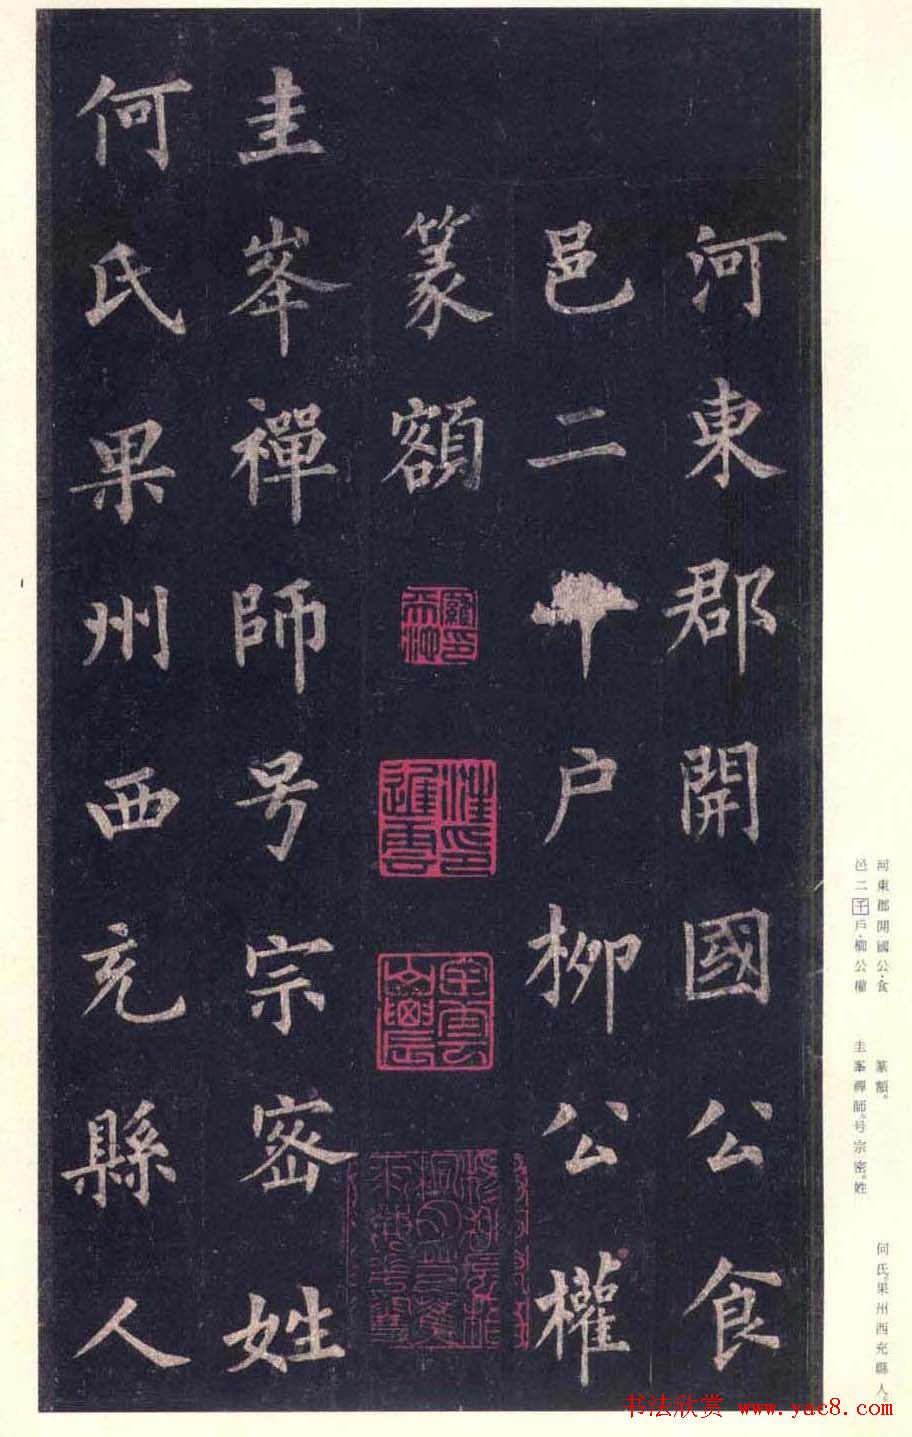 河東郡開國公食
邑二千戶柳公權
篆額
圭峯禪師号宗密姓
何氏果州西充縣人
河東郡開國公·食
邑二千戶·柳公權
篆額。
圭峯禪師。号宗密。姓
何氏。果州西充縣人。
书法欣赏 www.yac8.com